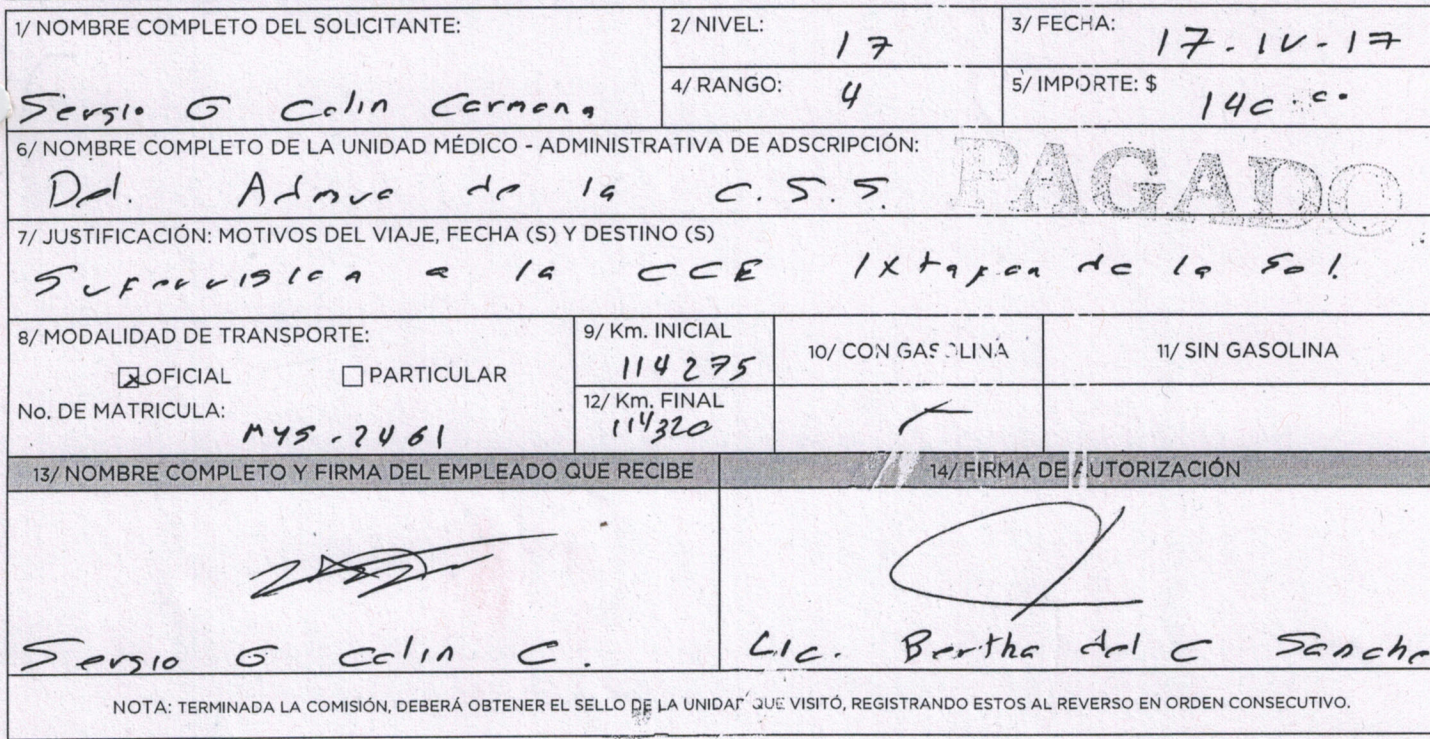 1/ NOMBRE COMPLETO DEL SOLICITANTE:
Sergio G Colin Carmona
2/ NIVEL: 17
3/ FECHA: 17-IV-17
4/ RANGO: 4
5/ IMPORTE: $ 140.00
6/ NOMBRE COMPLETO DE LA UNIDAD MÉDICO - ADMINISTRATIVA DE ADSCRIPCIÓN:
Del. Admva de la C.S.S.
PAGADO
7/ JUSTIFICACIÓN: MOTIVOS DEL VIAJE, FECHA (S) Y DESTINO (S)
Supervision a la CCE Ixtapan de la Sal
8/ MODALIDAD DE TRANSPORTE:
OFICIAL PARTICULAR
No. DE MATRICULA:
MYS-2461
9/ Km. INICIAL
114275
12/ Km. FINAL
114320
10/ CON GASOLINA
11/ SIN GASOLINA
13/ NOMBRE COMPLETO Y FIRMA DEL EMPLEADO QUE RECIBE
Sergio G Colin C.
14/ FIRMA DE AUTORIZACIÓN
Lic. Bertha del C Sanche
NOTA: TERMINADA LA COMISIÓN, DEBERÁ OBTENER EL SELLO DE LA UNIDAD QUE VISITÓ, REGISTRANDO ESTOS AL REVERSO EN ORDEN CONSECUTIVO.